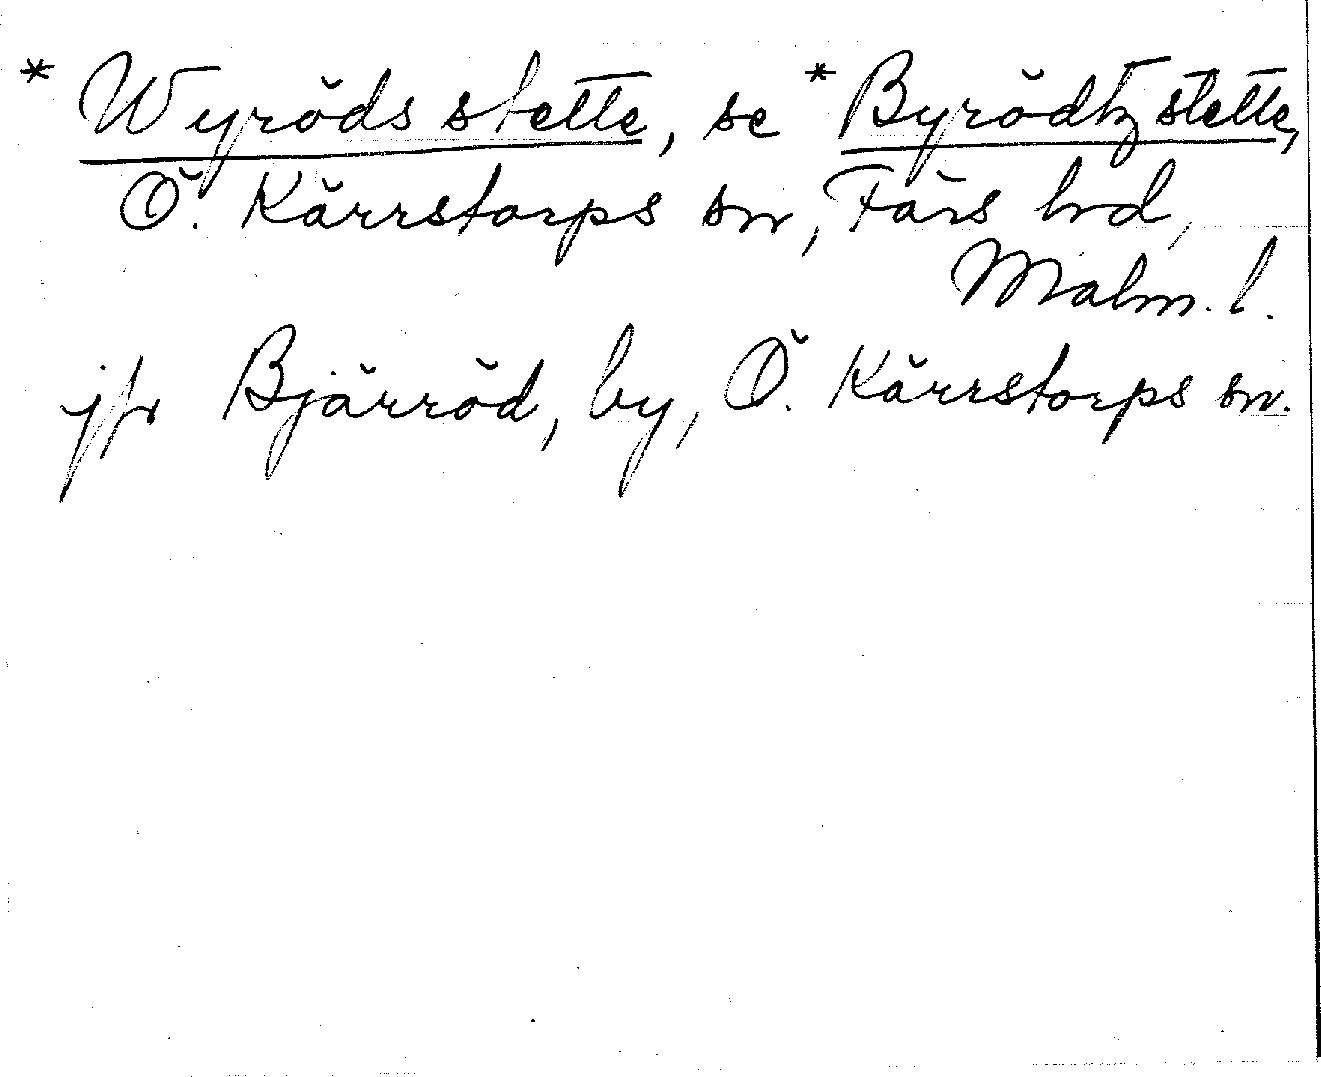 * Wyröds stette, se * Byrödtz stette,
Ö. Kärrstorps sn, Färs hd,
Malm. l.
jfr Bjärröd, by, Ö. Kärrstorps sn.